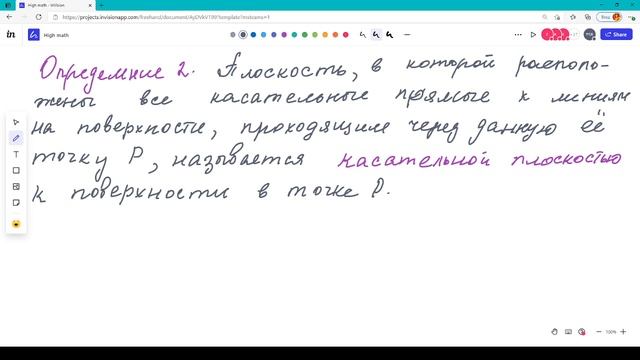 High math - InVision
https://projects.invisionapp.com/freehand/document/4yDVkV199?template?mstcams=1
in High math
Определние 2. Плоскость, в которой располо-
жены все касательные прямые к линиям
на поверхности, проходящим через данную её
точку P, называется касательной плоскостью
к поверхности в точке P.
100%